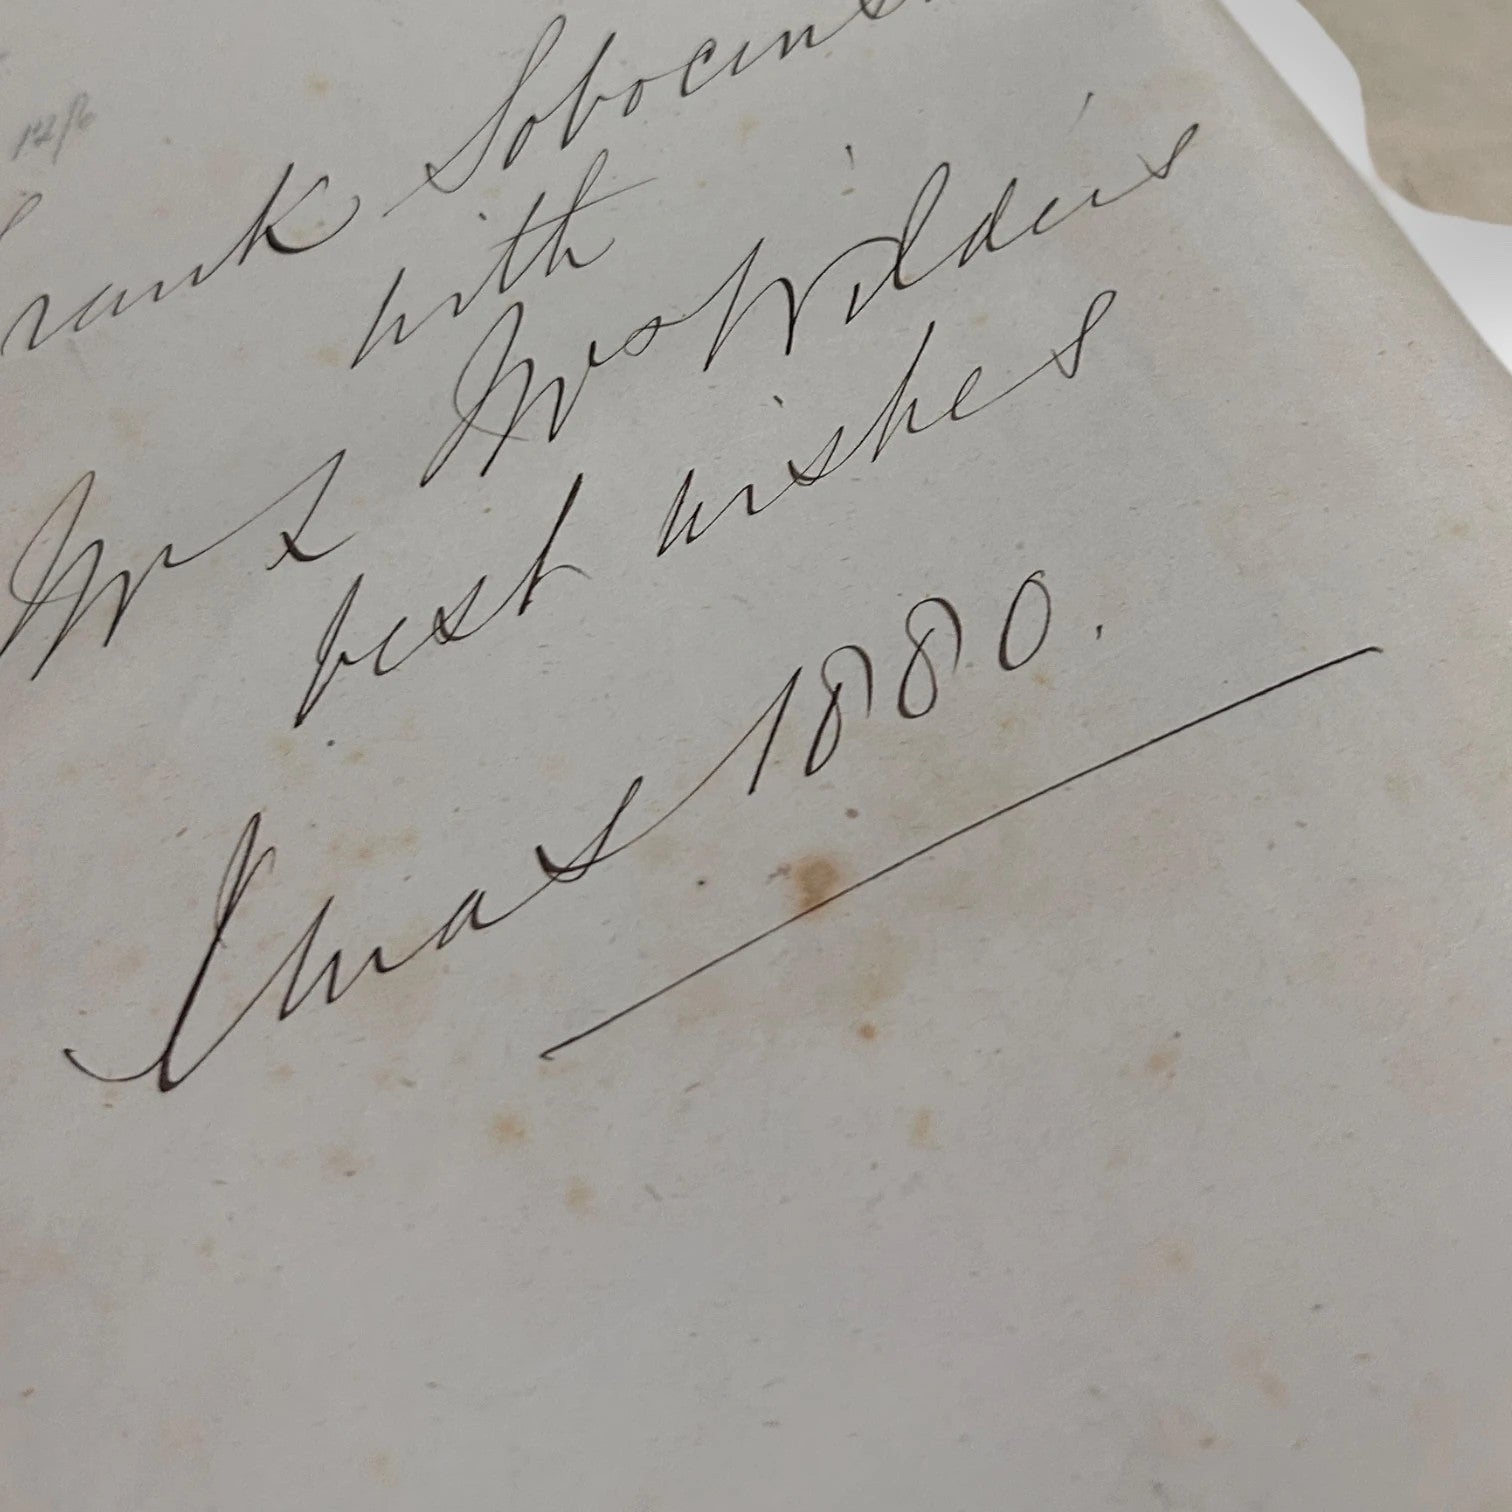 12/6
Frank Sobocins
with
Mr & Mrs Wilders
best wishes
Xmas 1880.